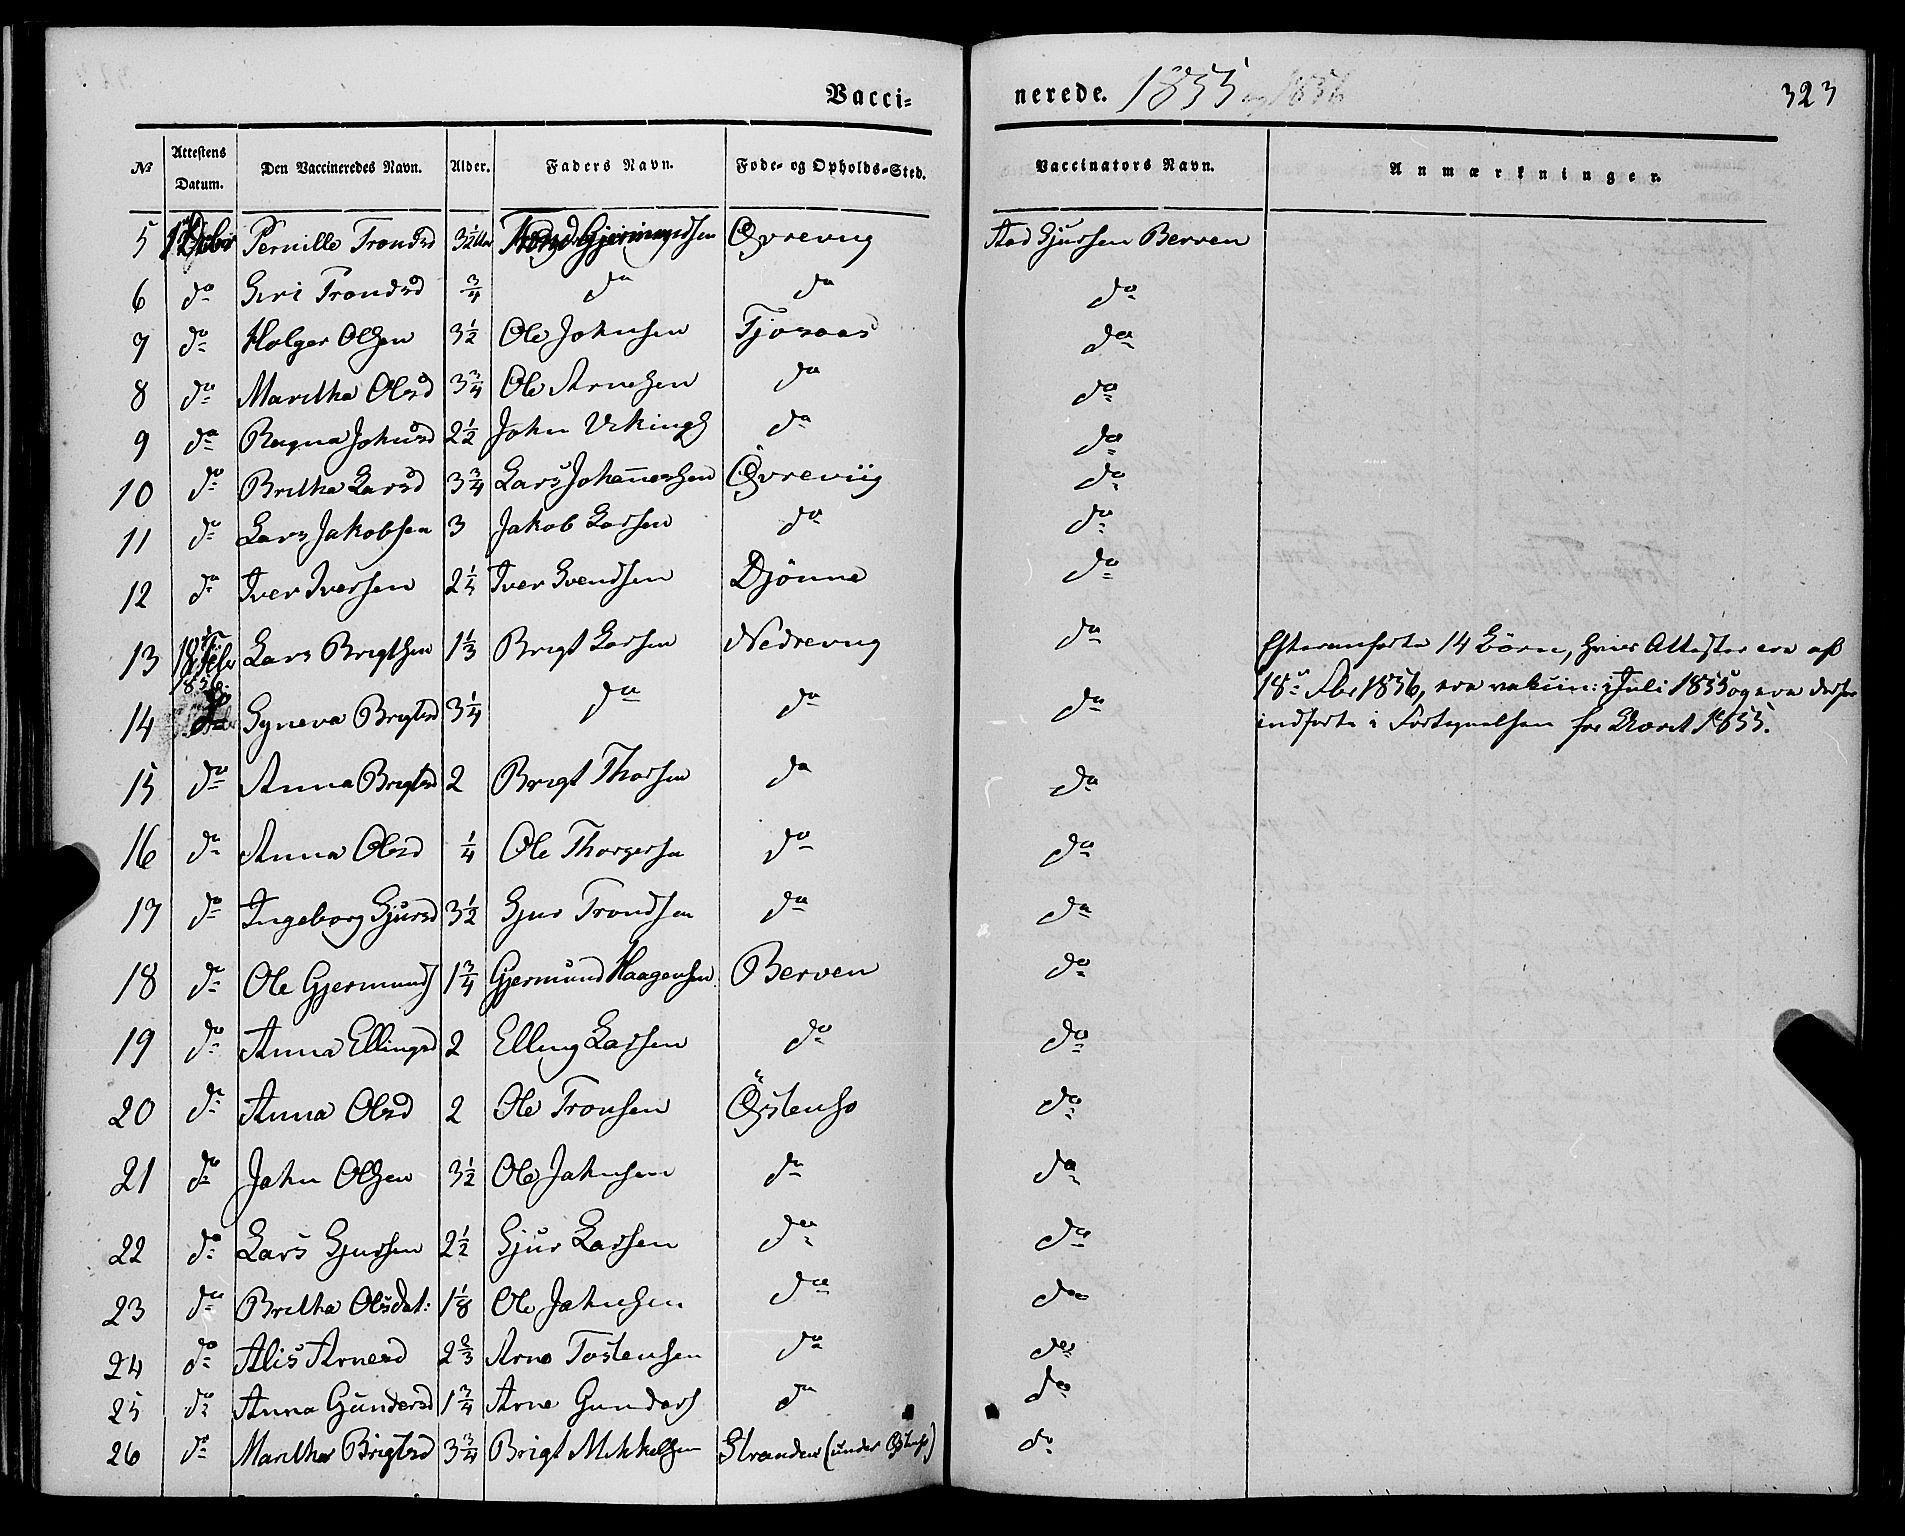 Vacci-
nerede. 1855 og 1856
323
№ Attestens Datum. Den Vaccineredes Navn. Alder. Faders Navn. Føde- og Opholds-Sted. Vaccinators Navn. Anmærkninger.
5 Pernille Trondsd 3½ Trond Gjermundsen Øvreviig Aad Gjursen Berven
6 do Guri Trondsd ¾ do do do
7 do Holger Olsen 3½ Ole Johnsen Tjoraas do
8 do Maritha Olsd 3¾ Ole Arnesen do do
9 do Ragna Johnsd 2½ John Vikings do do
10 do Britha Larsd 3¾ Lars Johannessen Øvreviig do
11 do Lars Jakobsen 3 Jakob Larsen do do
12 do Iver Iversen 2¼ Iver Svendsen Djönne do
13 18 Febr 1856. Lars Brigtsen 1⅓ Brigt Larsen Nedreviig do Efteranførte 14 Börn, hvis Attester ere af
18de Fbr 1856, ere vaksin: i Juli 1855 og ere derfor
indførte i Fortegnelsen for Aaret 1855.
14 do Syneva Brigtsd 3¼ do do do
15 do Anna Brigtsd 2 Brigt Thorsen do do
16 do Anna Olsd ¼ Ole Thorgersen do do
17 do Ingeborg Gjursd 3½ Gjur Trondsen do do
18 do Ole Gjermunds 1¾ Gjermund Haagensen Berven do
19 do Anna Ellingsd 2 Elling Larsen do do
20 do Anna Olsd 2 Ole Tronsen Östensø do
21 do John Olsen 3½ Ole Johnsen do do
22 do Lars Gjursen 2½ Gjur Larsen do do
23 do Britha Olsdat: 1⅛ Ole Johnsen do do
24 do Alis Arnesd 2⅔ Arne Tostensen do do
25 do Anna Gundersd 1¾ Arne Gunders do do
26 do Maritha Brigtsd 3¾ Brigt Mikkelsen Stranden (under Østensø) do